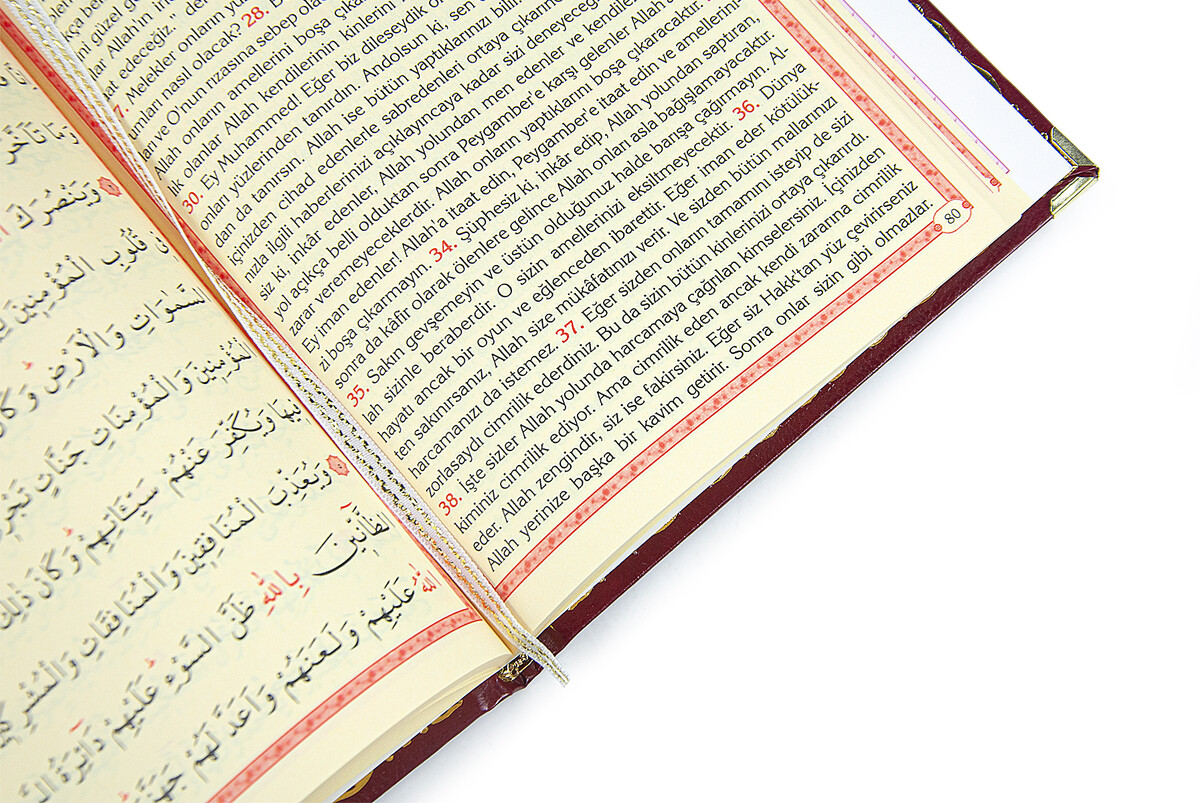 Allah'ın
edeceğiz.,,
Melekler onların
nasıl olacak? 28.
ve O'nun rızasına sebep
Allah onların amellerini boşa
lik olanlar Allah kendilerinin kinlerini
30. Ey Muhammed! Eğer biz dileseydik
onları yüzlerinden tanırdın. Andolsun ki, sen
dan da tanırsın. Allah ise bütün yaptıklarınızı
içinizden cihad edenlerle sabredenleri ortaya
nızla ilgili haberlerinizi açıklayıncaya kadar sizi
siz ki, inkâr edenler, Allah yolundan men edenler ve
yol açıkça belli olduktan sonra Peygamber'e karşı gelenler
zarar veremeyeceklerdir. Allah onların yaptıklarını boşa çıkaracaktır.
Ey iman edenler! Allah'a itaat edin, Peygamber'e itaat edin ve amellerini-
zi boşa çıkarmayın. 34. Şüphesiz ki, inkâr edip, Allah yolundan saptıran,
sonra da kâfir olarak ölenlere gelince Allah onları asla bağışlamayacaktır.
35. Sakın gevşemeyin ve üstün olduğunuz halde barışa çağırmayın. Al-
lah sizinle beraberdir. O sizin amellerinizi eksiltmeyecektir. 36. Dünya
hayatı ancak bir oyun ve eğlenceden ibarettir. Eğer iman eder kötülük-
ten sakınırsanız, Allah size mükâfatınızı verir. Ve sizden bütün mallarınızı
harcamanızı da istemez. 37. Eğer sizden onların tamamını isteyip de sizi
zorlasaydı cimrilik ederdiniz. Bu da sizin bütün kinlerinizi ortaya çıkarırdı.
38. İşte sizler Allah yolunda harcamaya çağrılan kimselersiniz. İçinizden
kiminiz cimrilik ediyor. Ama cimrilik eden ancak kendi zararına cimrilik
eder. Allah zengindir, siz ise fakirsiniz. Eğer siz Hakk'tan yüz çevirirseniz
Allah yerinize başka bir kavim getirir. Sonra onlar sizin gibi olmazlar.
80
تَاَخَّرَ
وَيَنْصُرَكَ
قُلُوبِ الْمُؤْمِنِينَ
السَّمٰوَاتِ وَالْاَرْضِ وَكَانَ
الْمُؤْمِنِينَ وَالْمُؤْمِنَاتِ جَنَّاتٍ
فِيهَا وَيُكَفِّرَ عَنْهُمْ سَيِّئَاتِهِمْ وَكَانَ ذٰلِكَ
وَيُعَذِّبَ الْمُنَافِقِينَ وَالْمُنَافِقَاتِ
الظَّٓانِّينَ بِاللّٰهِ ظَنَّ السَّوْءِ عَلَيْهِمْ دَٓائِرَةُ
اللّٰهُ عَلَيْهِمْ وَلَعَنَهُمْ وَاَعَدَّ لَهُمْ